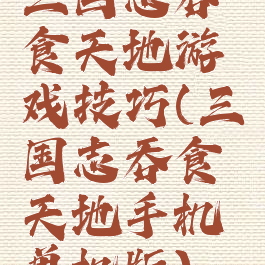 三国志吞
食天地游
戏技巧(三
国志吞食
天地手机
单机版)